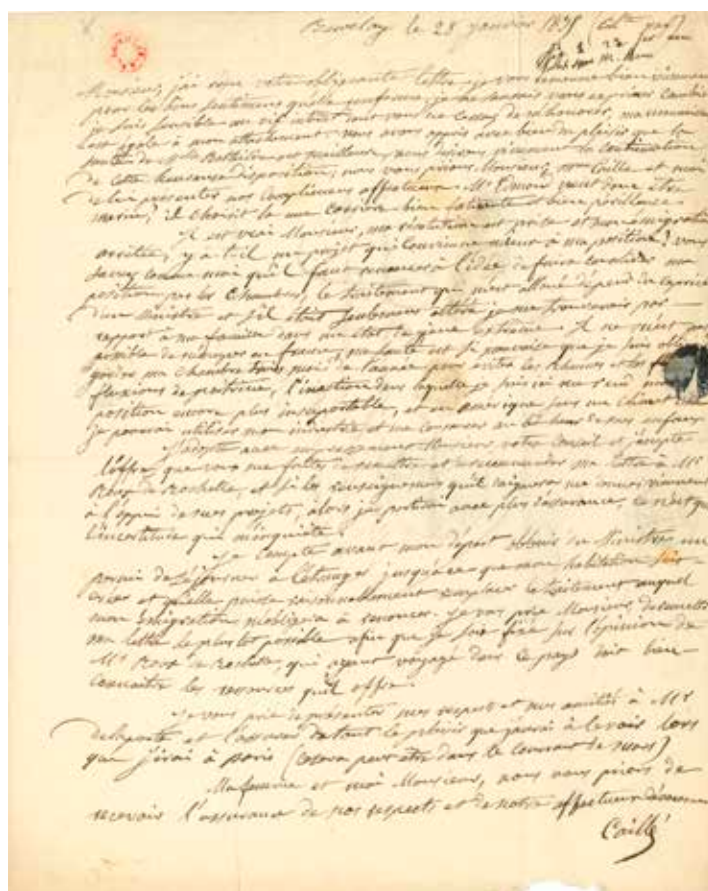 le 28 janvier 1835
Monsieur, j'ai reçu votre obligeante lettre, je vous remercie bien vivement
pour les bons sentimens qu'elle renferme, je ne saurais vous exprimer combien
je suis sensible au vif intérêt dont vous ne cessez de m'honorer, ma
est égale à mon attachement. nous avons appris avec bien du plaisir que la
santé de Mlle Bathilde est meilleure, nous désirons vivement la continuation
de cette heureuse disposition; nous vous prions Monsieur, Mme Caillé et moi
de lui présenter nos complimens affectueux. Mr Edmond veut donc être
marin, il choisit là une carrière bien et bien périlleuse.
Il est vrai Monsieur, ma résolution est prise et mon émigration
arrêtée, y a-t-il un projet qui convienne mieux à ma position? vous
savez comme moi qu'il faut renoncer à l'idée de faire consolider ma
position par les chambres, le traitement qui m'est alloué dépend du caprice
d'un Ministre et s'il était seulement altéré je me trouverais par
rapport à ma famille dans un état de gêne extrême. Il ne m'est pas
possible de en france, ma santé est si mauvaise que je suis obligé
garder ma chambre trois mois de l'année pour éviter les rhumes et les
fluxions de poitrine, l'inaction dans laquelle je suis ici me rend ma
position encore plus insupportable, et en amérique sous un climat
je pourrai utiliser mon industrie et me conserver au bonheur de mes enfans
J'adopte avec empressement Monsieur votre conseil et j'accepte
l'offre que vous me faites de remettre et de recommander ma lettre à Mr
Roux de Rochelle, et si les renseignemens qu'il daignera me donner viennent
à l'appui de mes projets, alors je partirai avec plus d'assurance, ce n'est que
l'incertitude qui m'inquiète.
Je compte avant mon départ obtenir du Ministre un
permis de séjourner à l'étranger jusqu'à ce que mon habitation soit
créée et qu'elle puisse raisonnablement remplacer le traitement auquel
mon émigration m'obligera à renoncer. Je vous prie Monsieur, de remettre
ma lettre le plus tôt possible afin que je sois fixé sur l'opinion de
Mr Roux de Rochelle, qui ayant voyagé dans ce pays doit bien
connaître les ressources qu'il offre.
Je vous prie de présenter nos respects et nos amitiés à Mr
Delaporte et l'assurer de tout le plaisir que j'aurai à le voir lors
que j'irai à paris (ce sera peut être dans le courant de mars)
Ma femme et moi Monsieur, nous vous prions de
recevoir l'assurance de nos respects et de notre affectueux dévouement
Caillé